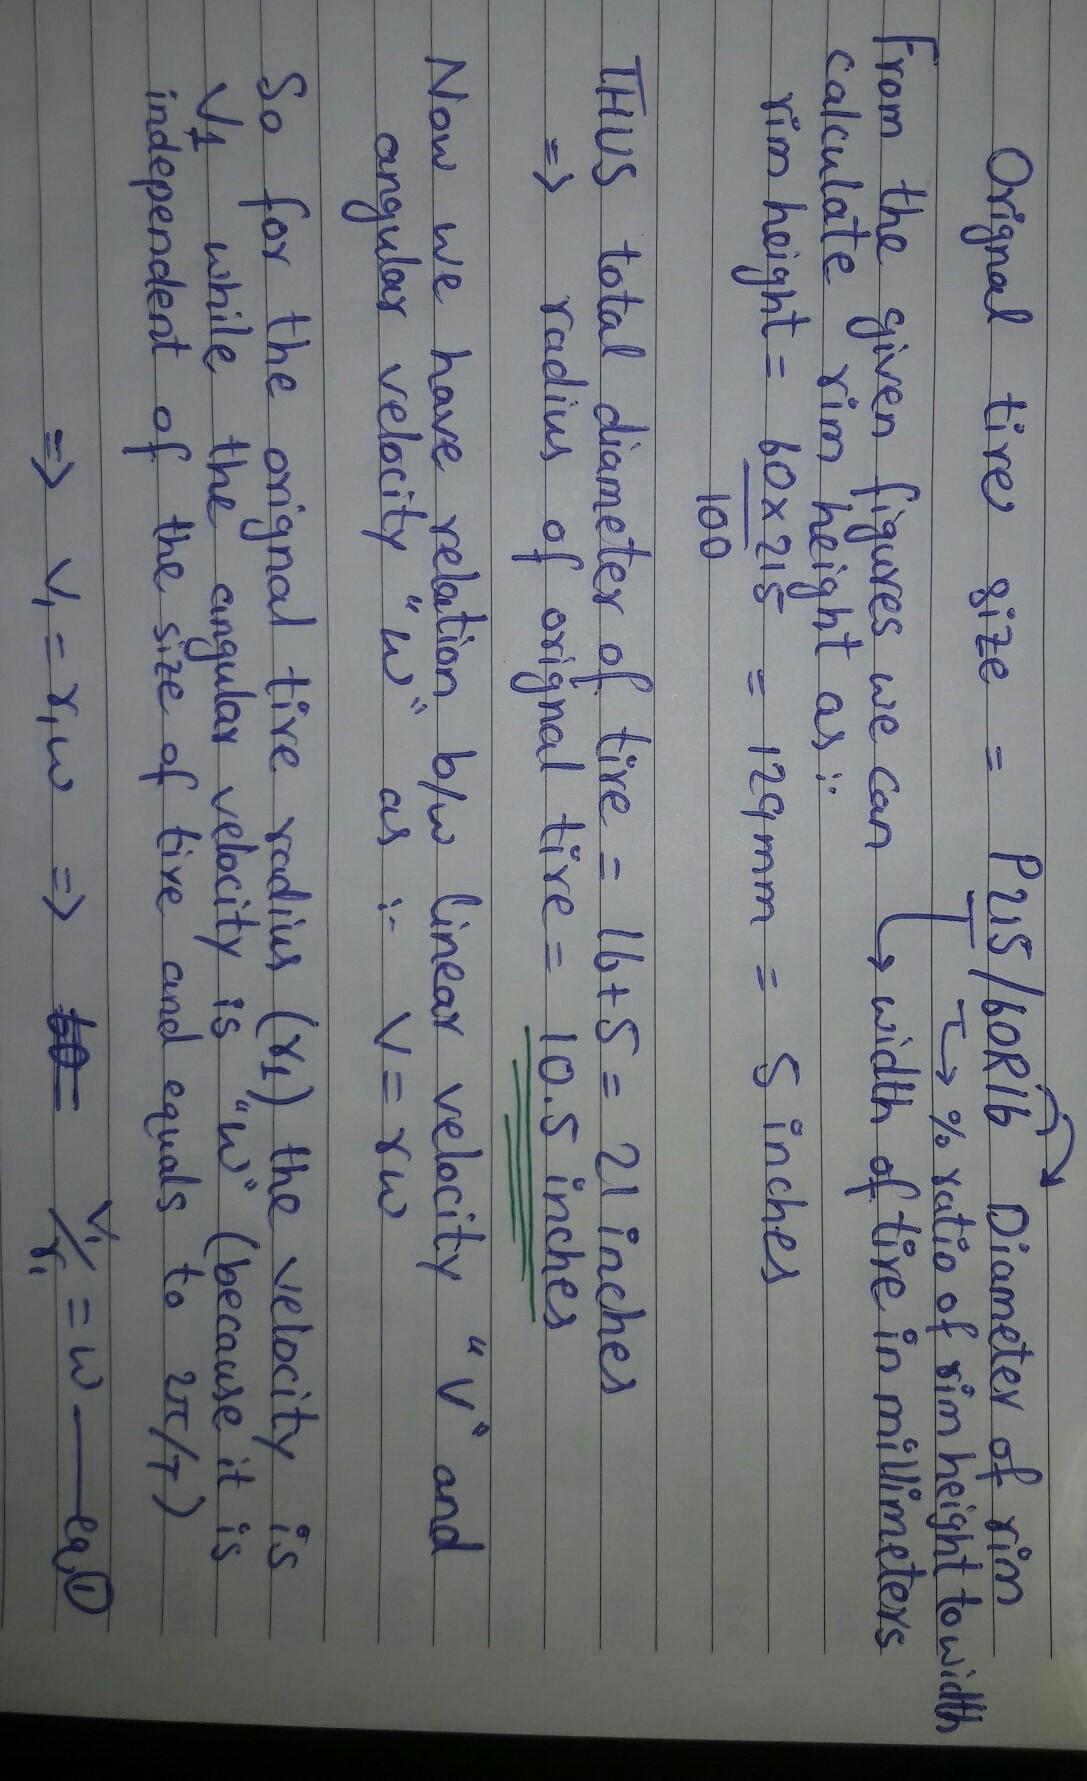 Orignal tire size = P215/60R16 Diameter of rim
% ratio of rim height to width
From the given figures we can width of tire in millimeters
calculate rim height as :-
rim height = 60x215 = 129mm = 5 inches
100
THUS total diameter of tire = 16+5 = 21 inches
=> radius of orignal tire = 10.5 inches
Now we have relation b/w linear velocity "V" and
angular velocity "w" as :- V = rw
So for the orignal tire radius (r1) the velocity is
V1 while the angular velocity is "w" (because it is
independent of the size of tire and equals to 2π/T)
=> V1 = r1w => V1/r1 = w — eq,①